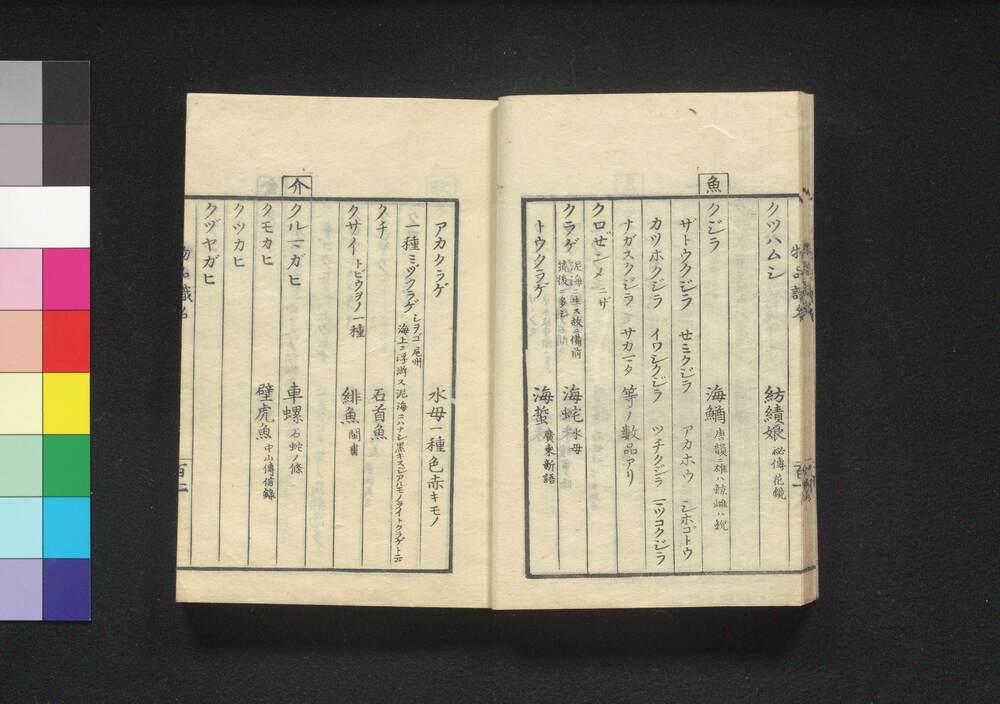 クツハムシ 紡績娘 秘傳花鏡
魚
クジラ 海鰌 唐韻ニ雄ハ鯨雌ハ鯢
ザトウクジラ セミクジラ アカホウ シホゴトウ
カツホクジラ イワシクジラ ツチクジラ マツコクジラ
ナガスクジラ サカマタ 等ノ數品アリ
クロゼンメ ニザ
クラゲ 泥海ニ生ス故ニ備前 筑後ニ多シ 海蛇 水母
トウクラゲ 海蜇 廣東新語
百一
アカクラゲ 水母一種色赤キモノ
一種ミヅクラゲ シヲゴ 尾州
海上ニ浮游ス泥海ニハナシ
クチ 石首魚
クサイ トビウヲノ一種 緋魚 閩書
介
クルマガヒ 車螺 石蛇ノ條
クモカヒ 壁虎魚 中山傳信錄
クツカヒ
クヅヤガヒ
物品識名
百二